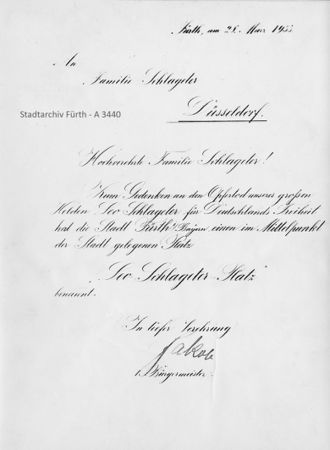 Fürth, am 28. März 1933
An
Familie Schlageter
Düsseldorf.
Stadtarchiv Fürth - A 3440
Hochverehrte Familie Schlageter!
Zum Gedenken an den Opfertod unseres großen
Helden Leo Schlageter für Deutschlands Freiheit
hat die Stadt Fürth Bayern einen im Mittelpunkt
der Stadt gelegenen Platz
"Leo Schlageter Platz"
benannt.
In tiefer Verehrung
Jakob
1. Bürgermeister.